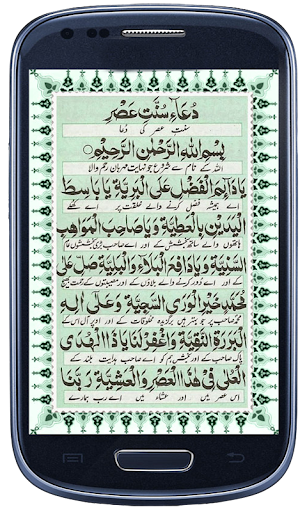 دُعَآءِ سُنَّتِ عَصْرِ
سنت عصر کی دعا
بِسْمِ اللهِ الرَّحْمٰنِ الرَّحِيْمِ
اللہ کے نام سے شروع جو نہایت مہربان رحم والا
يَا دَآئِمَ الْفَضْلِ عَلَى الْبَرِيَّةِ يَا بَاسِطَ
اے ہمیشہ فضل کرنے والے خلقت پر اے کھلے
الْيَدَيْنِ بِالْعَطِيَّةِ وَيَا صَاحِبَ الْمَوَاهِبِ
ہاتھوں والے ساتھ بخشش کے اور اے صاحب بڑی بخششوں
السَّنِيَّةِ وَيَا دَافِعَ الْبَلَاءِ وَالْبَلِيَّةِ صَلِّ عَلٰى
کے اور اے دور کرنے والے بلاؤں کے اور مصیبتوں کے
مُحَمَّدٍ خَيْرِ الْوَرٰى السَّجِيَّةِ وَعَلٰى اٰلِهِ
محمد صاحب پر جو بہتر ہیں برگزیدہ مخلوقات کے اور اوپر آل اس کے
الْبَرَرَةِ النَّقِيَّةِ وَاغْفِرْ لَنَا يَا ذَا الْهُدٰى
پاک صاحب کے اور بخش ہم کو اے صاحب ہدایت بلند کے
الْعُلٰى فِيْ هٰذَا الْعَصْرِ وَالْعَشِيَّةِ رَبَّنَا
اس عصر میں اور عشاء میں اے رب ہمارے